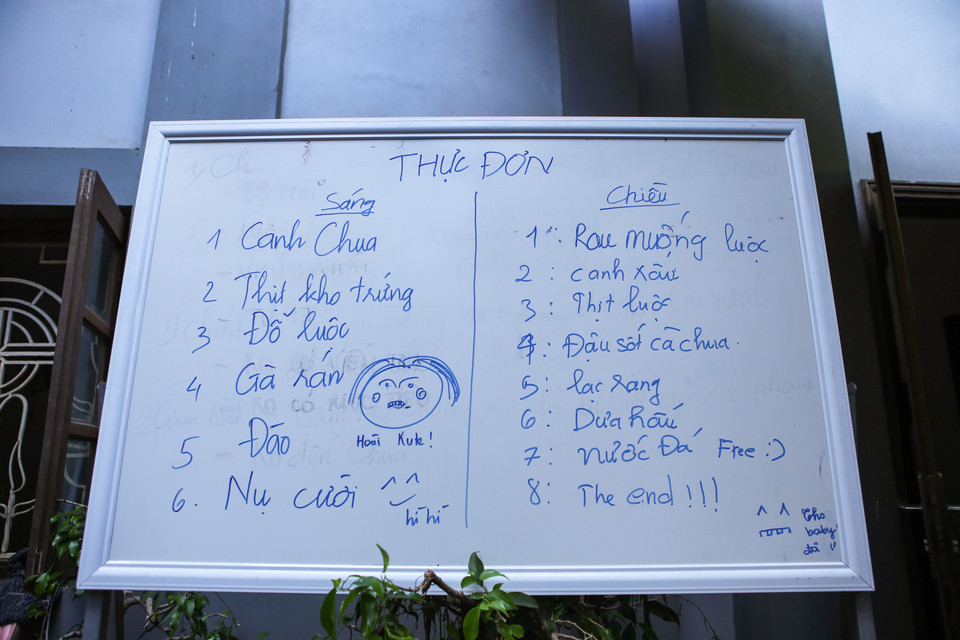 THỰC ĐƠN
Sáng
1 Canh Chua
2 Thịt kho trứng
3 Đỗ luộc
4 Gà rán
Hoài Kute!
5 Đào
6. Nụ cười ^^
hì hì
Chiều
1: Rau muống luộc
2: canh xấu
3: Thịt luộc
4: Đậu sốt cà chua.
5: lạc rang
6: Dưa hấu
7: nước Đá Free :)
8: The end!!!
^ ^ Cho
baby